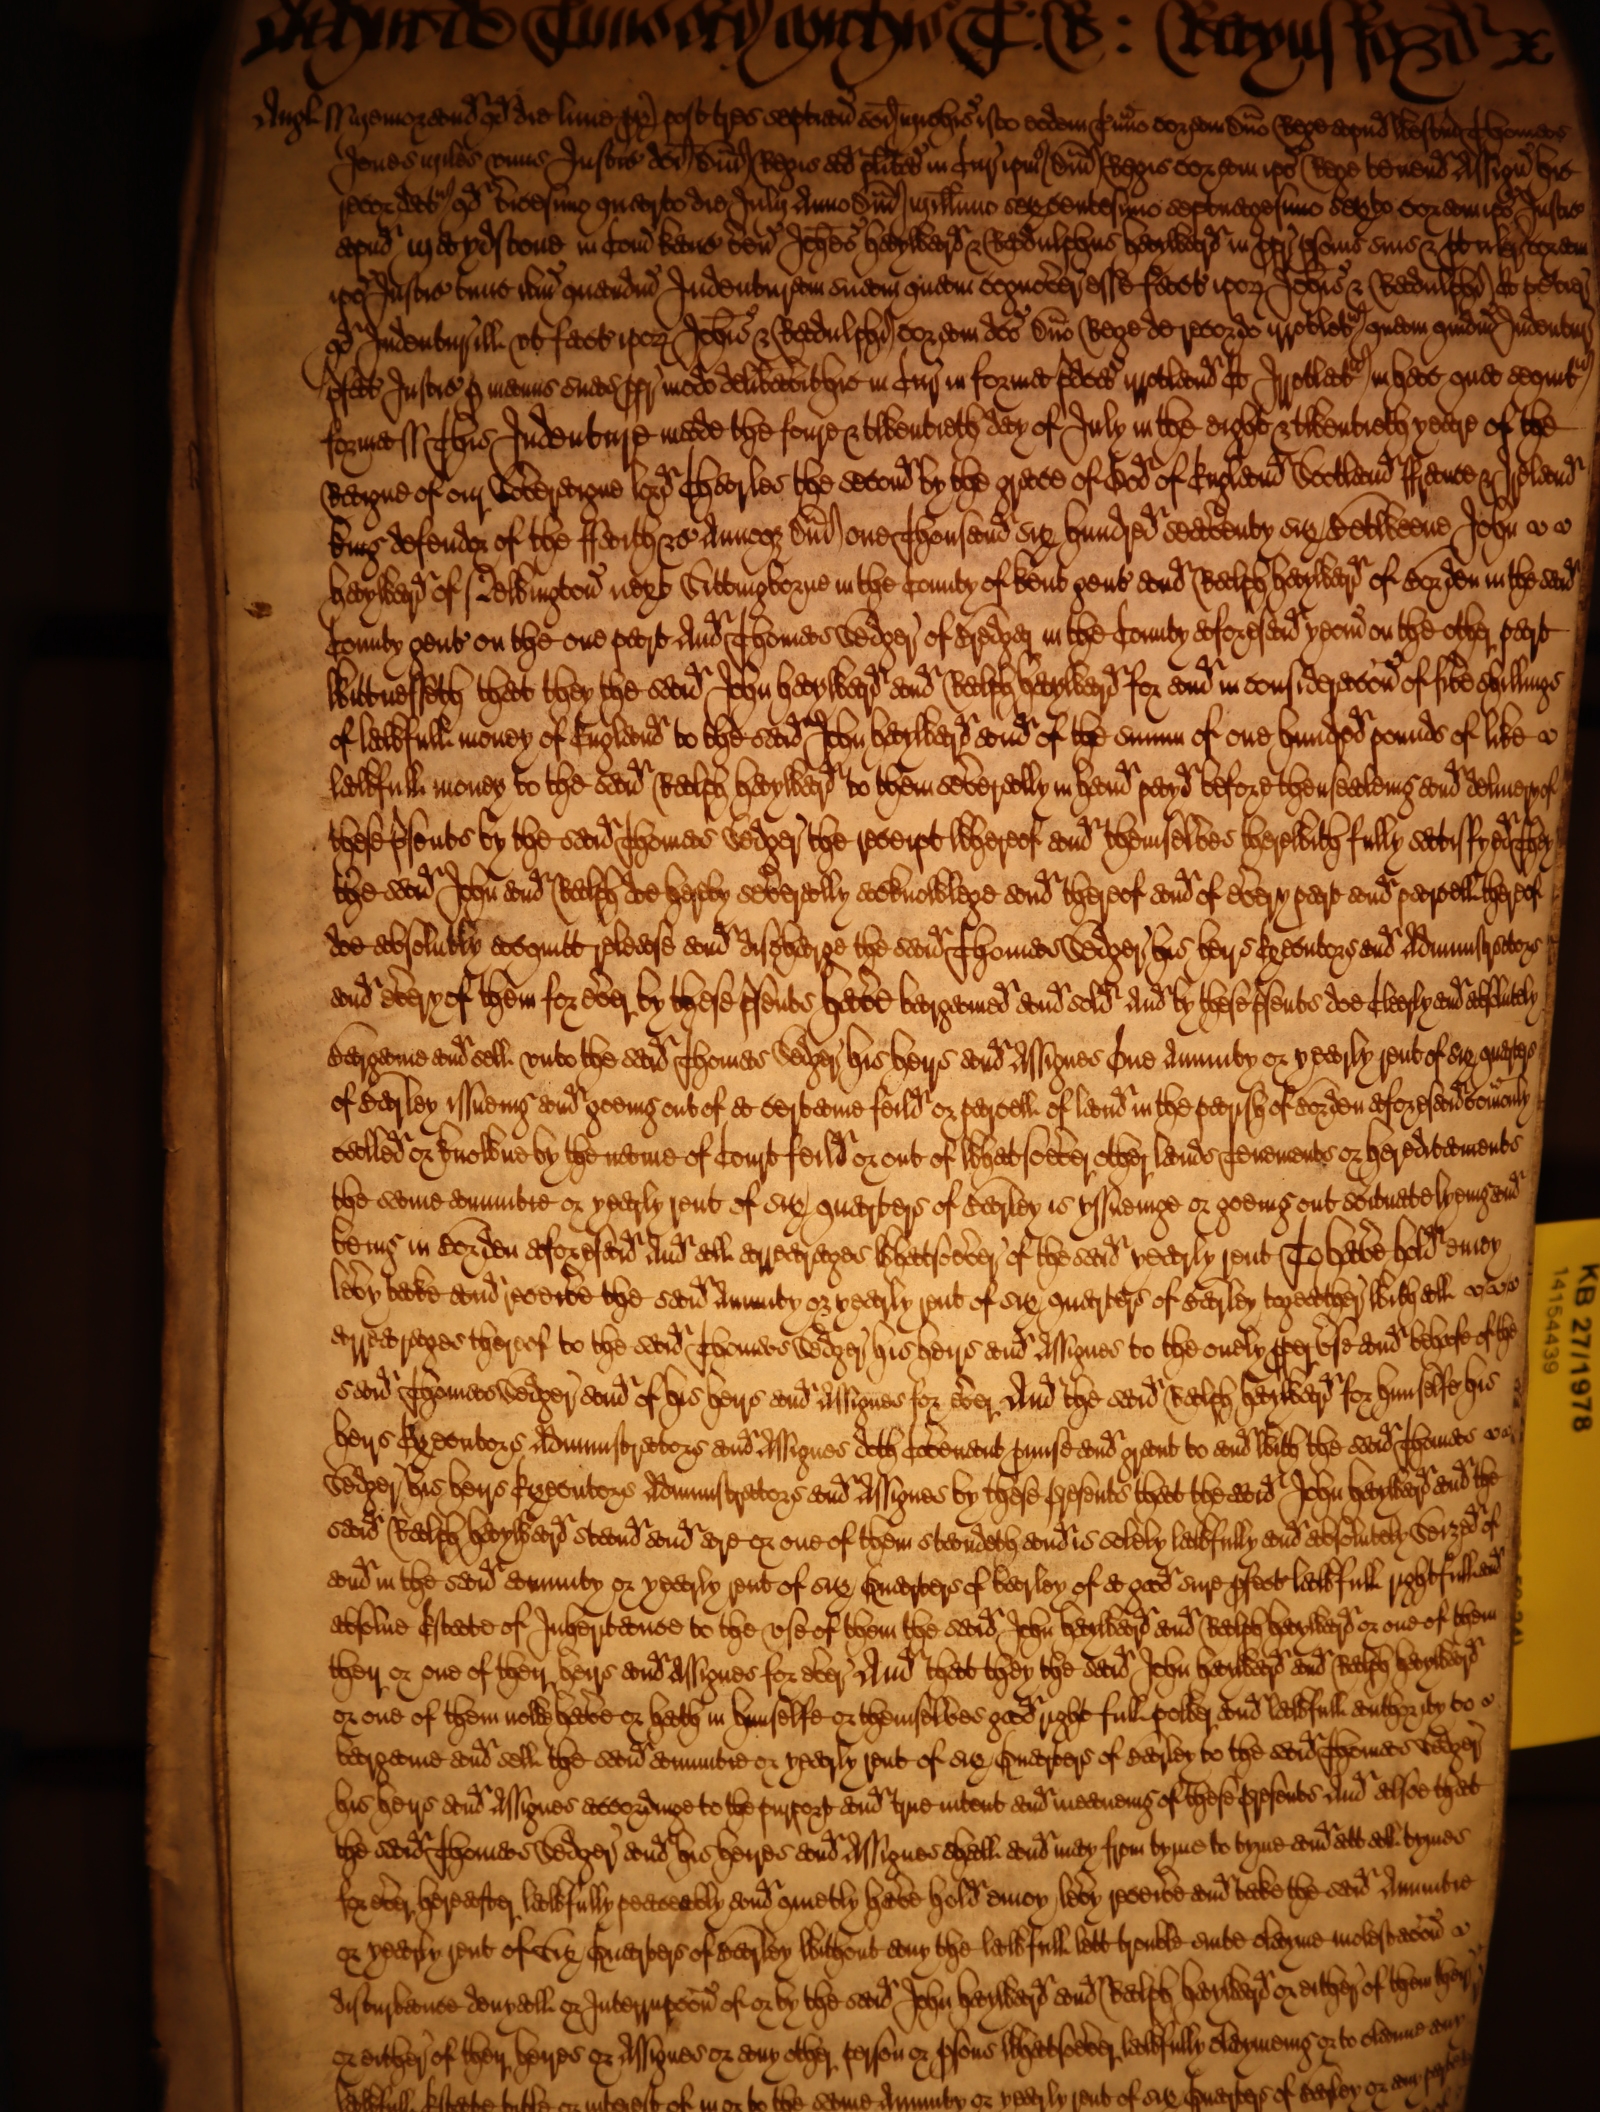 Angl ss Memorand qd die lune px post tres septiman sci Michis isto eodem Tmino coram Dno Rege apud Westm Thomas
Jones miles unus Justic dci Dni Regis ad plita in Cur ipius Dni Regis coram ipo Rege tenend Assign hic
recordat qd vicesimo quarto die Julij Anno Dni millimo sexcentesimo septuagesimo sexto coram ipo Justic
apud Maydstone in Com Kanc ven Johes Haylward & Radulphus Haylward in ppr psonis suis & ptuler coram
ipo Justic tunc ibm quandm Indenturam suam quam cognover esse fact ipoz Johis & Radulphi Et petier
qd Indentur ill ut fact ipoz Johis & Radulphi coram dco Dno Rege de recordo irrotulet quam quidm Indentur
pfat Justic p manus suas ppr modo deliberavit hic in Cur in forma pdca irrotuland Et Irrotulat in hac que sequit
forma ss This Indenture made the foure & twentieth day of July in the eight & twentieth yeare of the
Raigne of our Soveraigne lord Charles the second by the grace of God of England Scotland ffrance & Ireland
King defendor of the ffaith &c Annoq Dni one Thousand six hundred seaventy six Betweene John
Haylward of next Sittingborne in the County of Kent gent and Ralph Haylward of Borden in the said
County gent on the one part And Thomas Sedger of Bredgar in the County aforesaid yeom on the other part
Wittnesseth that they the said John Haylward and Ralph Haylward for and in consideracon of five shillings
of lawfull money of England to the said John Haylward and of the summ of one hundred pounds of like
lawfull money to the said Ralph Haylward to them severally in hand payd before thensealeing and delivery of
these psents by the said Thomas Sedger the receipt whereof and themselves therewith fully satisfyed They
the said John and Ralph doe hereby severally acknowledge and thereof and of every part and parcell thereof
doe absolutly acquitt release and discharge the said Thomas Sedger his heirs Executors and Administrators
and every of them for ever by these psents Have bargained and sold And by these psents doe Clearly and absolutely
Bargaine and sell unto the said Thomas Sedger his heirs and Assignes One Annuity or yearly rent of six quarters
of Barley issueing and goeing out of a certaine feild or parcell of land in the parish of Borden aforesaid comonly
called or knowne by the name of Court feild or out of whatsoever other lands Tenements or hereditaments
the same annuitie or yearly rent of six quarters of Barley is yssueinge or goeing out scituate lyeing and
being in Borden aforesaid And all arrearages whatsoever of the said yearly rent To have hold enioy
levy take and receive the said Annuity or yearly rent of six quarters of Barley togeather with all
arrearages thereof to the said Thomas Sedger his heirs and Assignes to the onely pper use and behoofe of the
said Thomas Sedger and of his heirs and Assignes for ever And the said Ralph Haylward for himselfe his
heirs Executors Administrators and Assignes doth Covenant pmise and grant to and with the said Thomas
Sedger his heirs Executors Administrators and Assignes by these presents that the said John Haylward and the
said Ralph Haylward stand and are or one of them standeth and is solely lawfully and absolutely Seized of
and in the said annuity or yearly rent of six Quarters of barley of a good sure pfect lawfull rightfull and
absolute Estate of Inheritance to the use of them the said John Haylward and Ralph Haylward or one of them
their or one of their heirs and Assignes for ever And that they the said John Haylward and Ralph Haylward
or one of them now have or hath in himselfe or themselves good right full power and lawfull authority to
bargaine and sell the said annuitie or yearly rent of six Quarters of Barley to the said Thomas Sedger
his heirs and Assignes accordinge to the purport and true intent and meaneing of these presents And alsoe that
the said Thomas Sedger and his heires and Assignes shall and may from tyme to tyme and att all tymes
for ever hereafter lawfully peaceably and quietly have hold enioy levy receive and take the said Annuitie
or yearly rent of Six Quarters of Barley without any the lawfull lett trouble suite claime molestacon
disturbance denyall or Interrupcon of or by the said John Haylward and Ralph Haylward or either of them their
or either of their heires or Assignes or any other person or psons whatsoever lawfully claymeing or to claime any
lawfull Estate title or interest of in or to the same Annuity or yearly rent of six Quarters of Barley or any parte
KB 27/1978
14154439